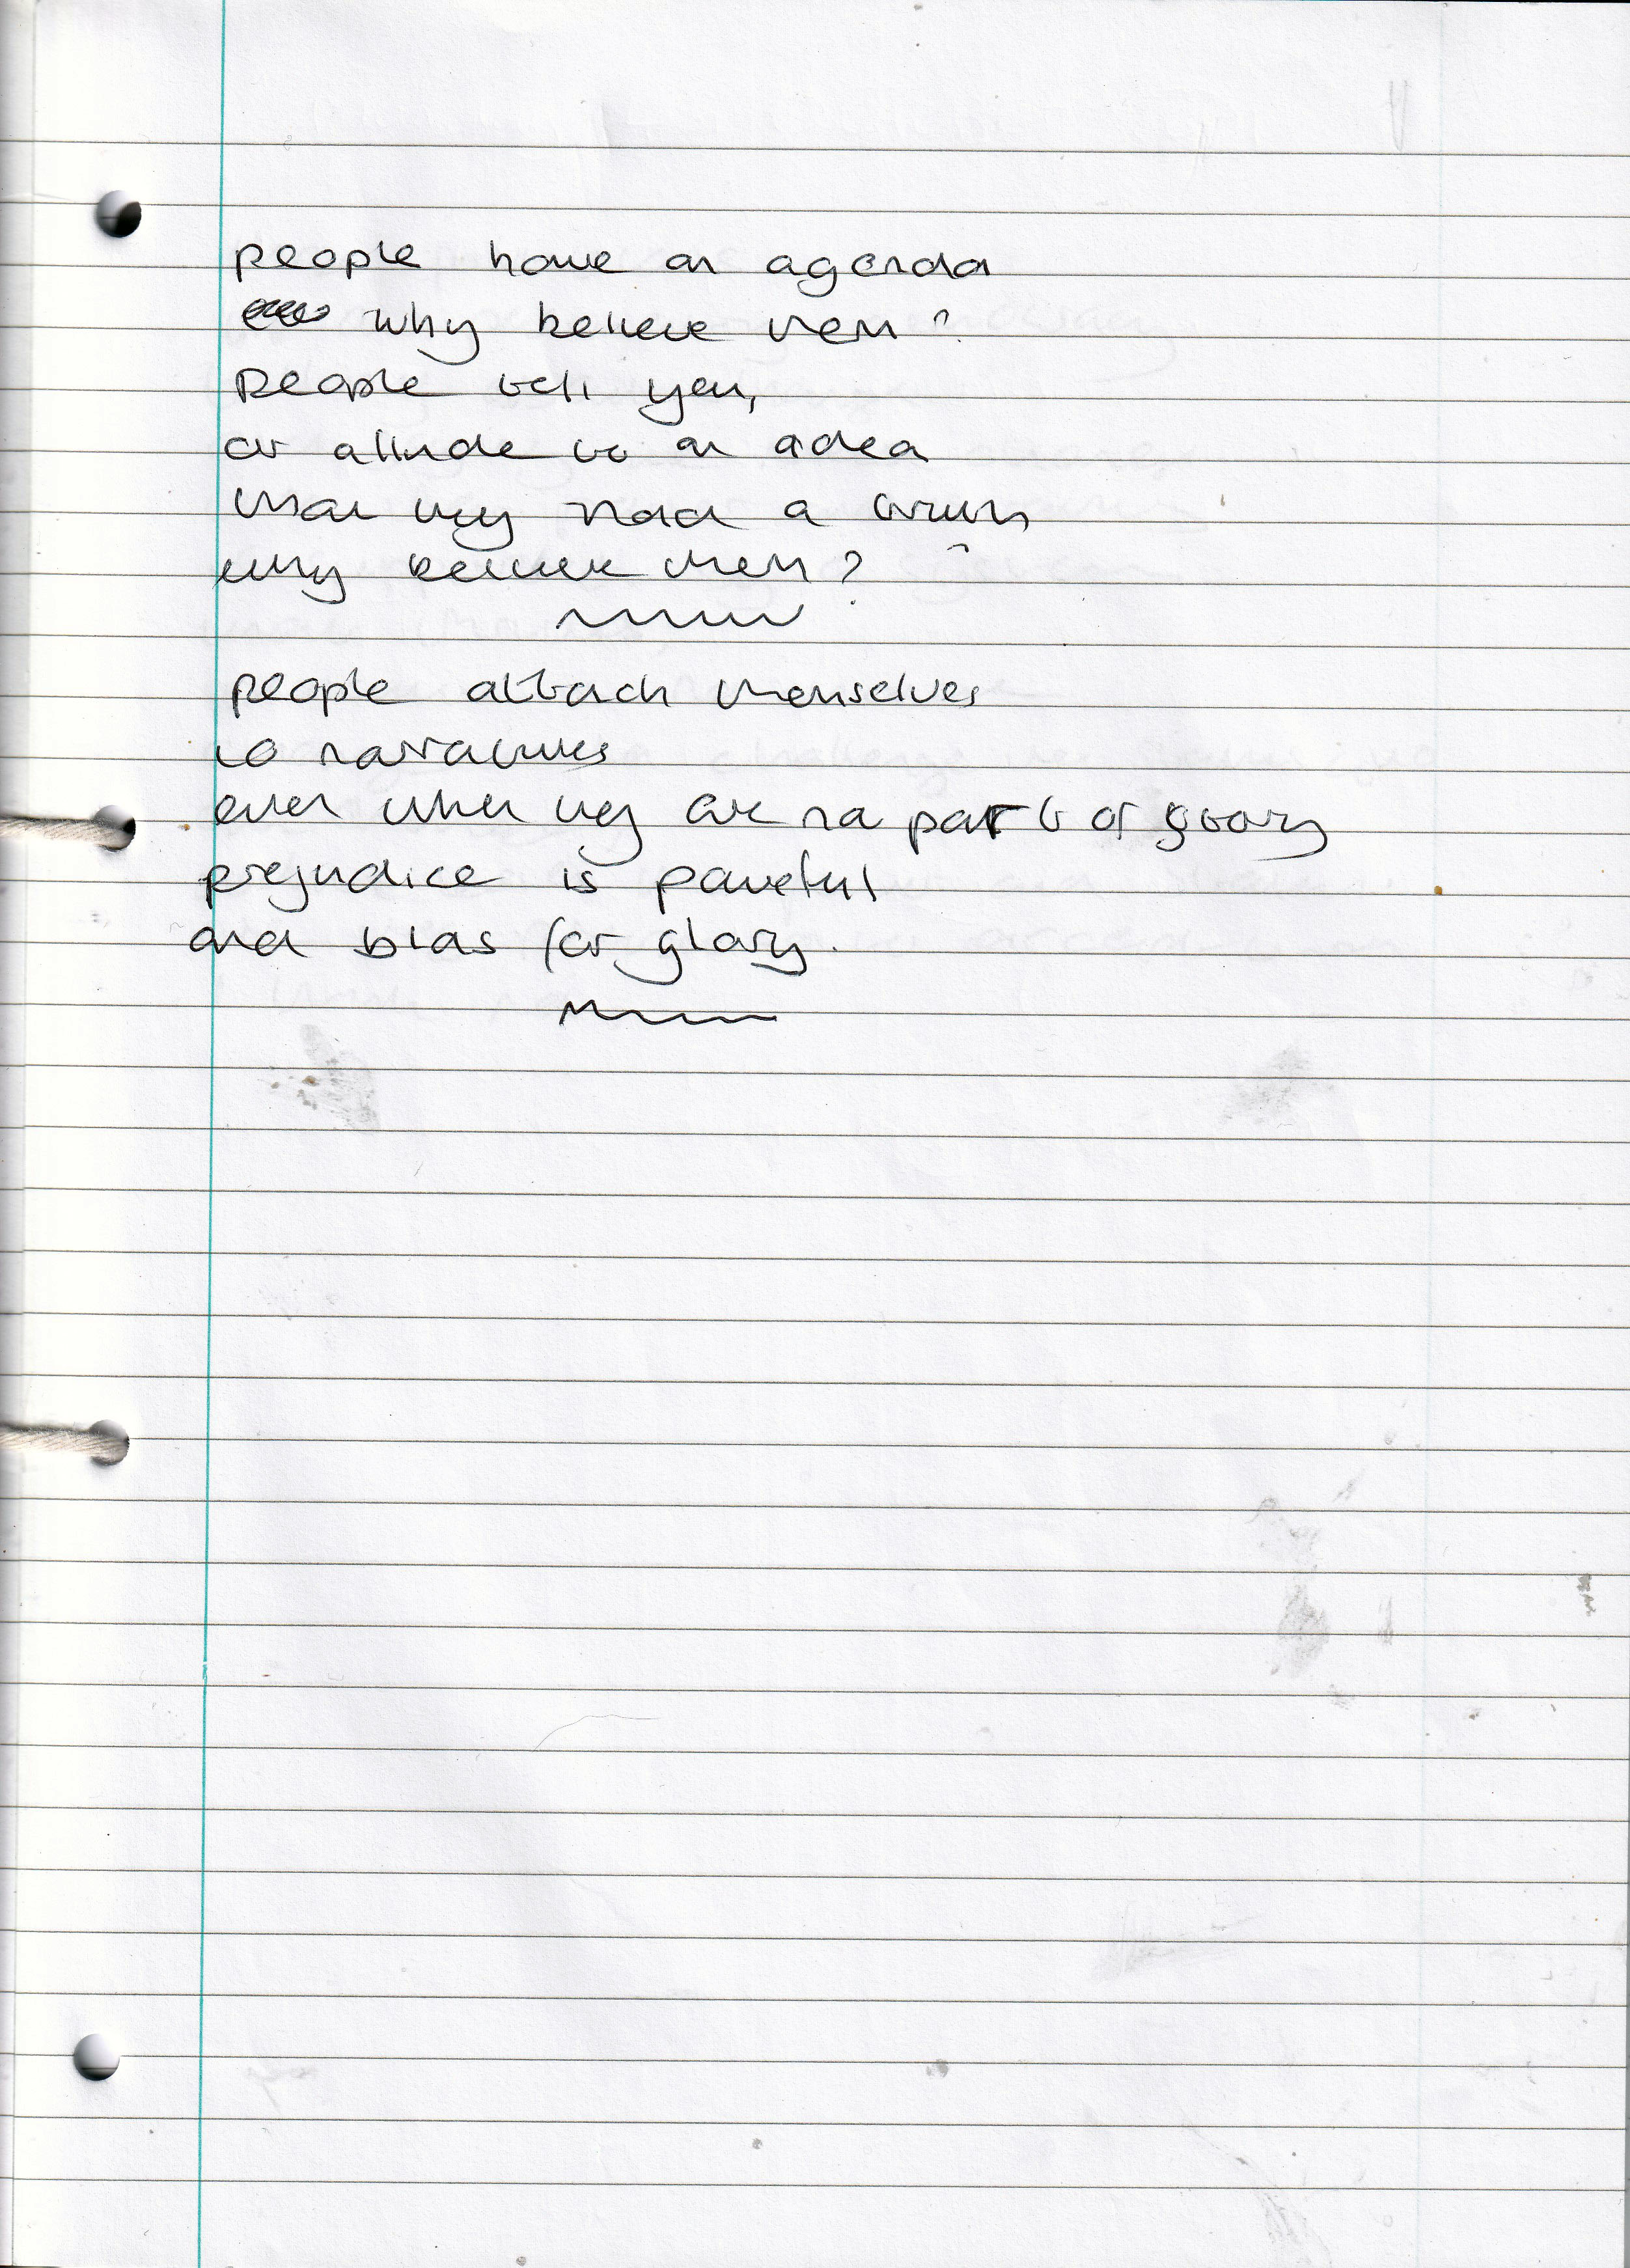 people have an agenda
why believe them?
people tell you,
or allude to an idea
that they had a truth
why believe them?
people attach themselves
to narratives
even when they are no part of story
prejudice is powerful
and bias for glory.